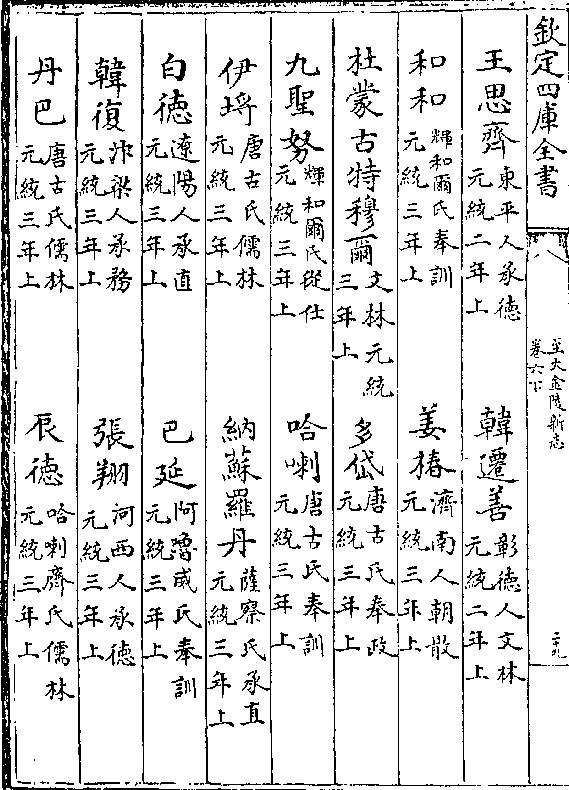 欽定四庫全書
至大金陵新志
卷六下
二十九
王思齊東平人承德元統二年上 韓遷善彰德人文林元統二年上
和和輝和爾氏奉訓元統三年上 姜椿濟南人朝散元統三年上
杜蒙古特穆爾文林元統三年上 多岱唐古氏奉政元統三年上
九聖努輝和爾氏從仕元統三年上 哈喇唐古氏奉訓元統三年上
伊埒唐古氏儒林元統三年上 納蘇羅丹薩察氏承直元統三年上
白德遼陽人承直元統三年上 巴延阿嚕威氏奉訓元統三年上
韓復汴梁人承務元統三年上 張翔河西人承德元統三年上
丹巴唐古氏儒林元統三年上 辰德哈喇齊氏儒林元統三年上